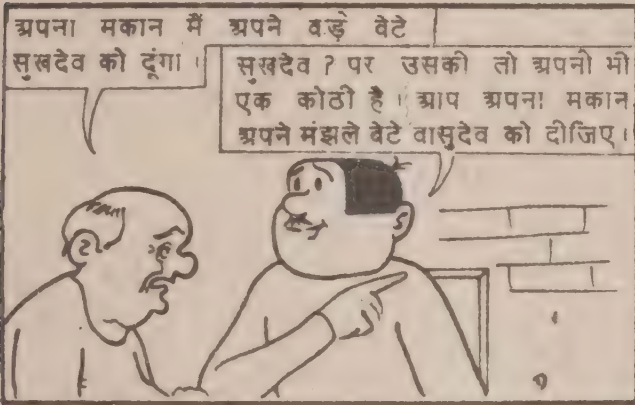 अपना मकान मैं अपने बड़े बेटे
सुखदेव को दूंगा।
सुखदेव? पर उसकी तो अपनी भी
एक कोठी है। आप अपना मकान
अपने मंझले बेटे वासुदेव को दीजिए।